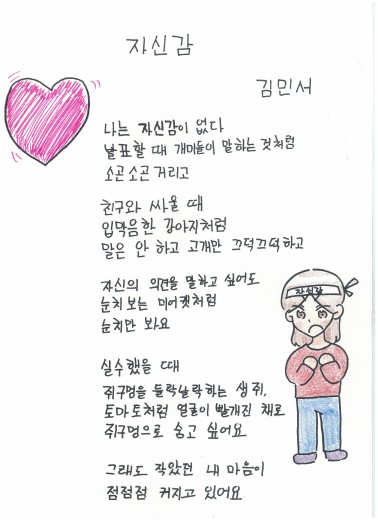 자신감
김민서
나는 자신감이 없다
발표할 때 개미들이 말하는 것처럼
소곤소곤 거리고
친구와 싸울 때
입막음한 강아지처럼
말은 안 하고 고개만 끄덕끄덕하고
자신의 의견을 말하고 싶어도
눈치 보는 미어켓처럼
눈치만 봐요
실수했을 때
쥐구멍을 들락날락하는 생쥐,
토마토처럼 얼굴이 빨개진 채로
쥐구멍으로 숨고 싶어요
그래도 작았던 내 마음이
점점점 커지고 있어요
자신감